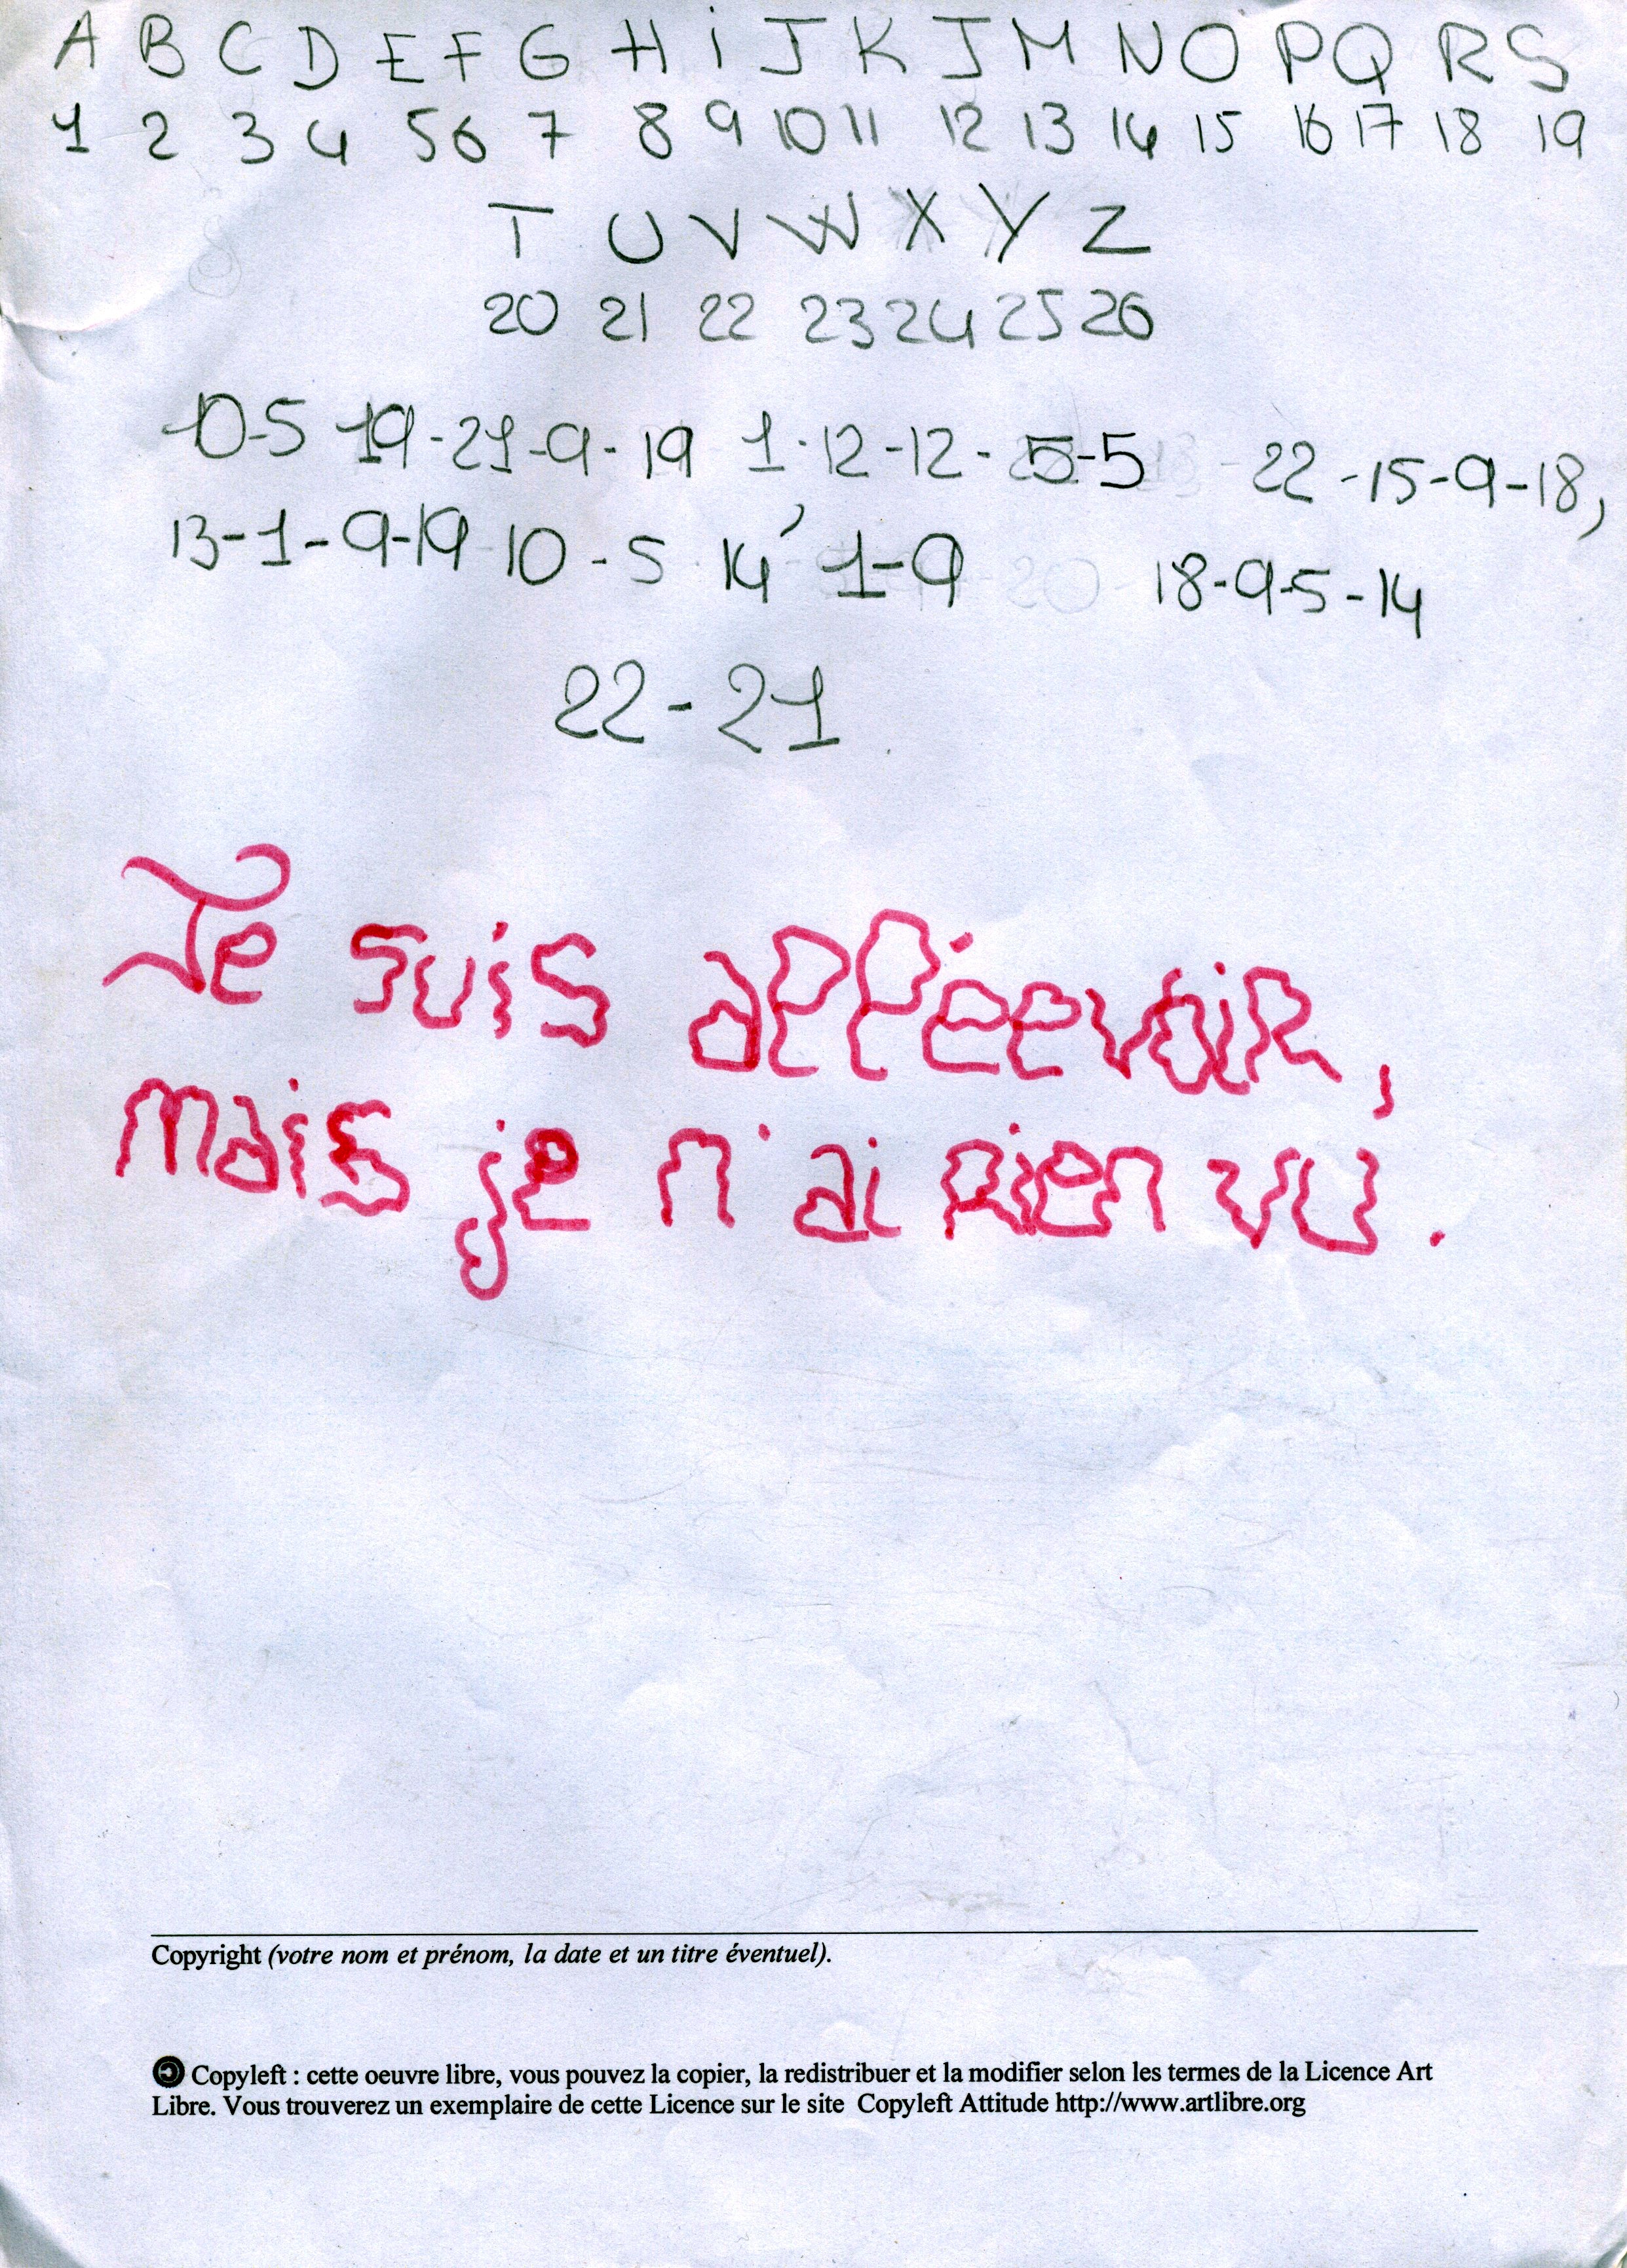 A B C D E F G H i J K J M N O P Q R S
1 2 3 4 5 6 7 8 9 10 11 12 13 14 15 16 17 18 19
T U V W X Y Z
20 21 22 23 24 25 26
10-5 19-21-9-19 1-12-12-5-5 22-15-9-18,
13-1-9-19 10-5 14'1-9 18-9-5-14
22-21.
Je suis alléevoir,
mais je n'ai rien vu.
Copyright (votre nom et prénom, la date et un titre éventuel).
Copyleft : cette oeuvre libre, vous pouvez la copier, la redistribuer et la modifier selon les termes de la Licence Art
Libre. Vous trouverez un exemplaire de cette Licence sur le site Copyleft Attitude http://www.artlibre.org